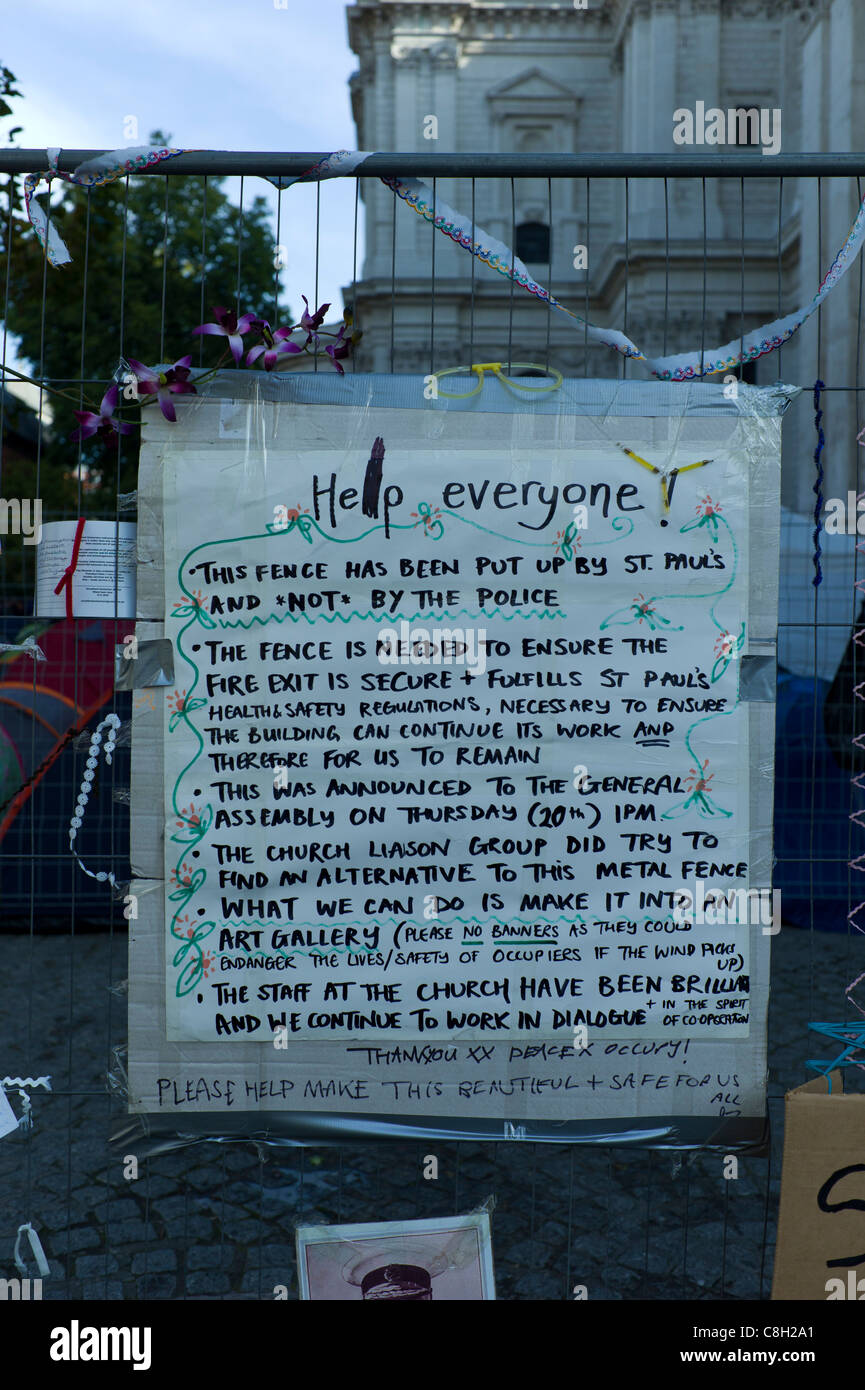 Help everyone!
• THIS FENCE HAS BEEN PUT UP BY ST. PAUL'S
AND *NOT* BY THE POLICE
• THE FENCE IS NEEDED TO ENSURE THE
FIRE EXIT IS SECURE + FULFILLS ST PAUL'S
HEALTH & SAFETY REGULATIONS, NECESSARY TO ENSURE
THE BUILDING CAN CONTINUE ITS WORK AND
THEREFORE FOR US TO REMAIN
• THIS WAS ANNOUNCED TO THE GENERAL
ASSEMBLY ON THURSDAY (20th) 1PM.
• THE CHURCH LIAISON GROUP DID TRY TO
FIND AN ALTERNATIVE TO THIS METAL FENCE
• WHAT WE CAN DO IS MAKE IT INTO AN
ART GALLERY (PLEASE NO BANNERS AS THEY COULD
ENDANGER THE LIVES/SAFETY OF OCCUPIERS IF THE WIND PICKS
UP)
• THE STAFF AT THE CHURCH HAVE BEEN BRILLIANT
AND WE CONTINUE TO WORK IN DIALOGUE + IN THE SPIRIT
OF CO-OPERATION
THANKYOU XX PEACE X OCCUPY!
PLEASE HELP MAKE THIS BEAUTIFUL + SAFE FOR US
ALL
S
alamy
Image ID: C8H2A1
www.alamy.com